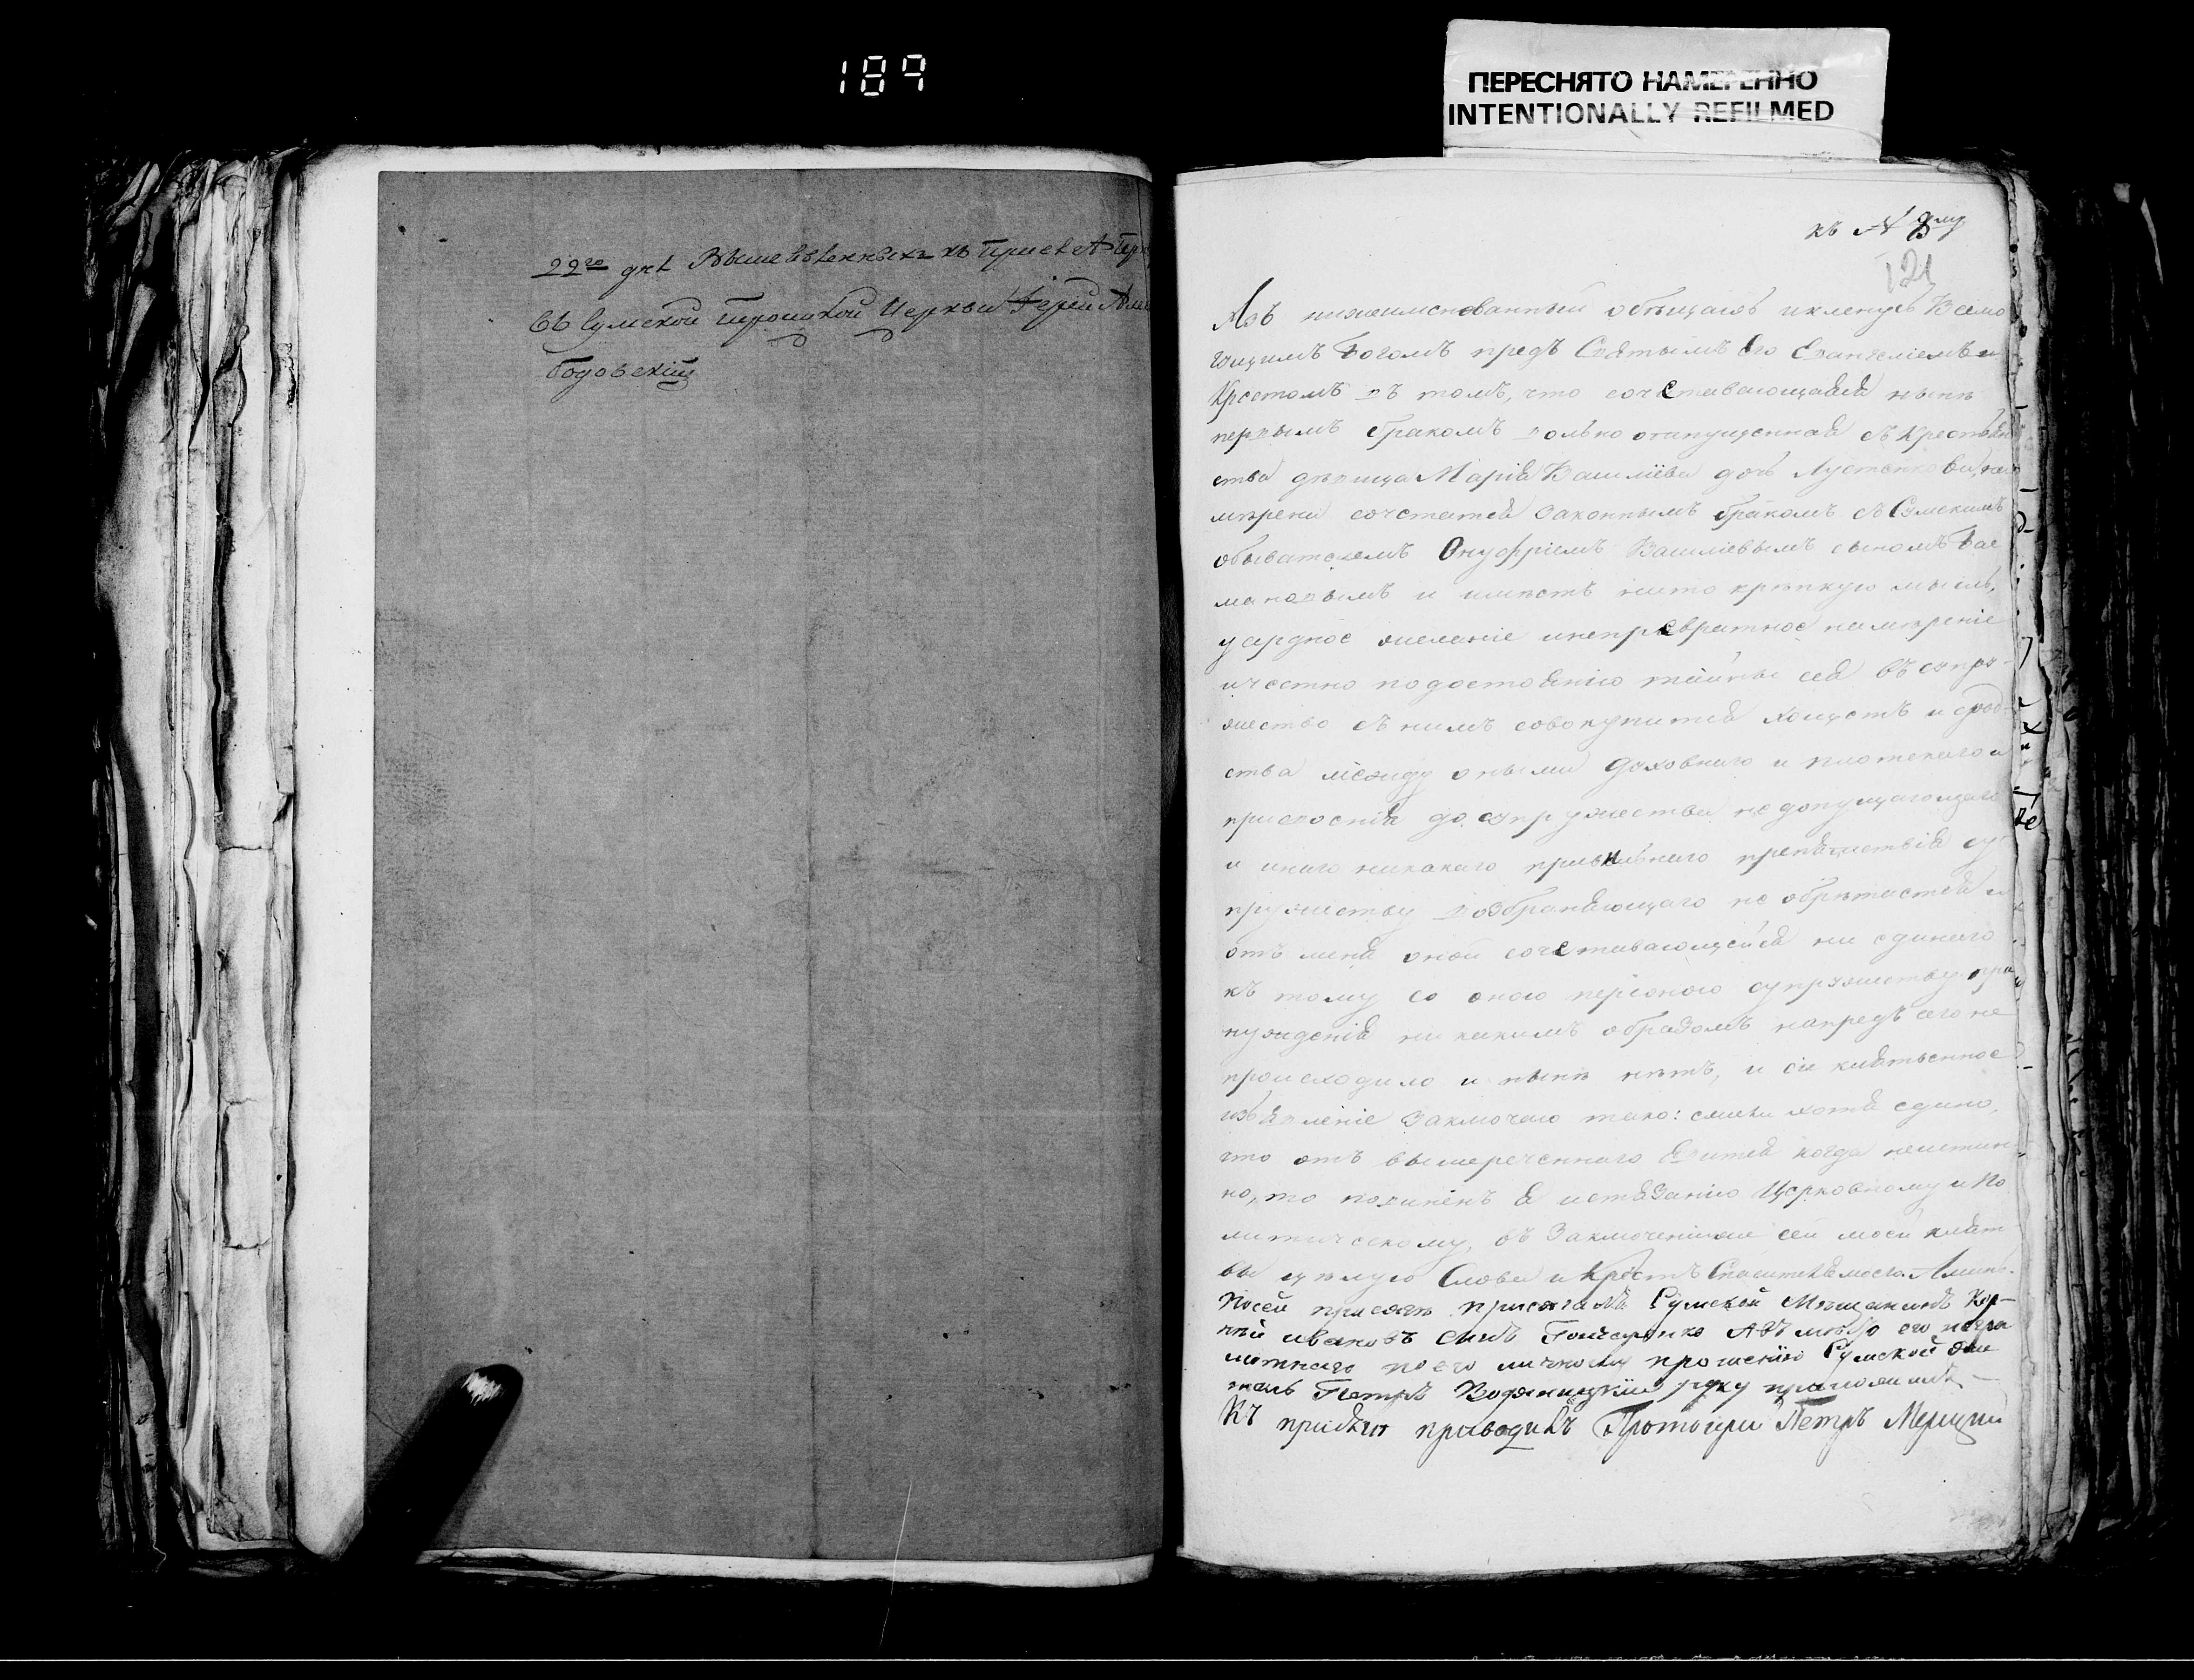 189
ПЕРЕСНЯТО НАМЕРЕННО
INTENTIONALLY REFILMED
22го дня
въ Сумской Троицкой Церкви Іерей
къ № 8му
121
Азъ нижеимянованный обѣщаюсь и кленусь Всемо
гущимъ Богомъ предъ Святымъ Его Евангеліемъ и
Крестомъ въ томъ, что сочетавающаяся нынѣ
первымъ бракомъ вольно отпущенная съ Крестьян
ства дѣвица Марія Васильева дочь
мѣрена сочетатся законнымъ бракомъ съ Сумскимъ
обывателемъ Онуфріемъ Васильевымъ сыномъ
и имѣетъ на то крѣпкую мысль,
усердное желаніе и непревратное намѣреніе
и честно по достоянію тайны сея въ супру-
жество съ нимъ совокупится хощетъ и срод-
ства между оными духовнаго и плотскаго и
присвоенія до супружества не допущающаго
и инаго никакаго правильнаго препятствія су-
пружеству возбраняющаго не обрѣтается и
отъ меня оной сочетавающейся ни единаго
къ тому со оною персоною супружеству при
нужденія ни какимъ образомъ напредъ сего не
происходило и нынѣ нѣтъ, и сіе клятвенное
изъявленіе заключаю тако: ежели хотя едино,
что отъ вышереченнаго явится когда неистин
но, то повиненъ я истязанію Церковному и По
литическому, въ заключеніи же сей моей клят
вы цѣлую Слова и Крестъ Спасителя моего. Аминь.
По сей присягѣ присягалъ Сумской Мѣщанинъ Кор-
ній Ивановъ сынъ А вмѣсто его негра
мотнаго по его личному прошенію Сумской
Петръ руку приложилъ
Къ присягѣ приводилъ Протоіерей Петръ